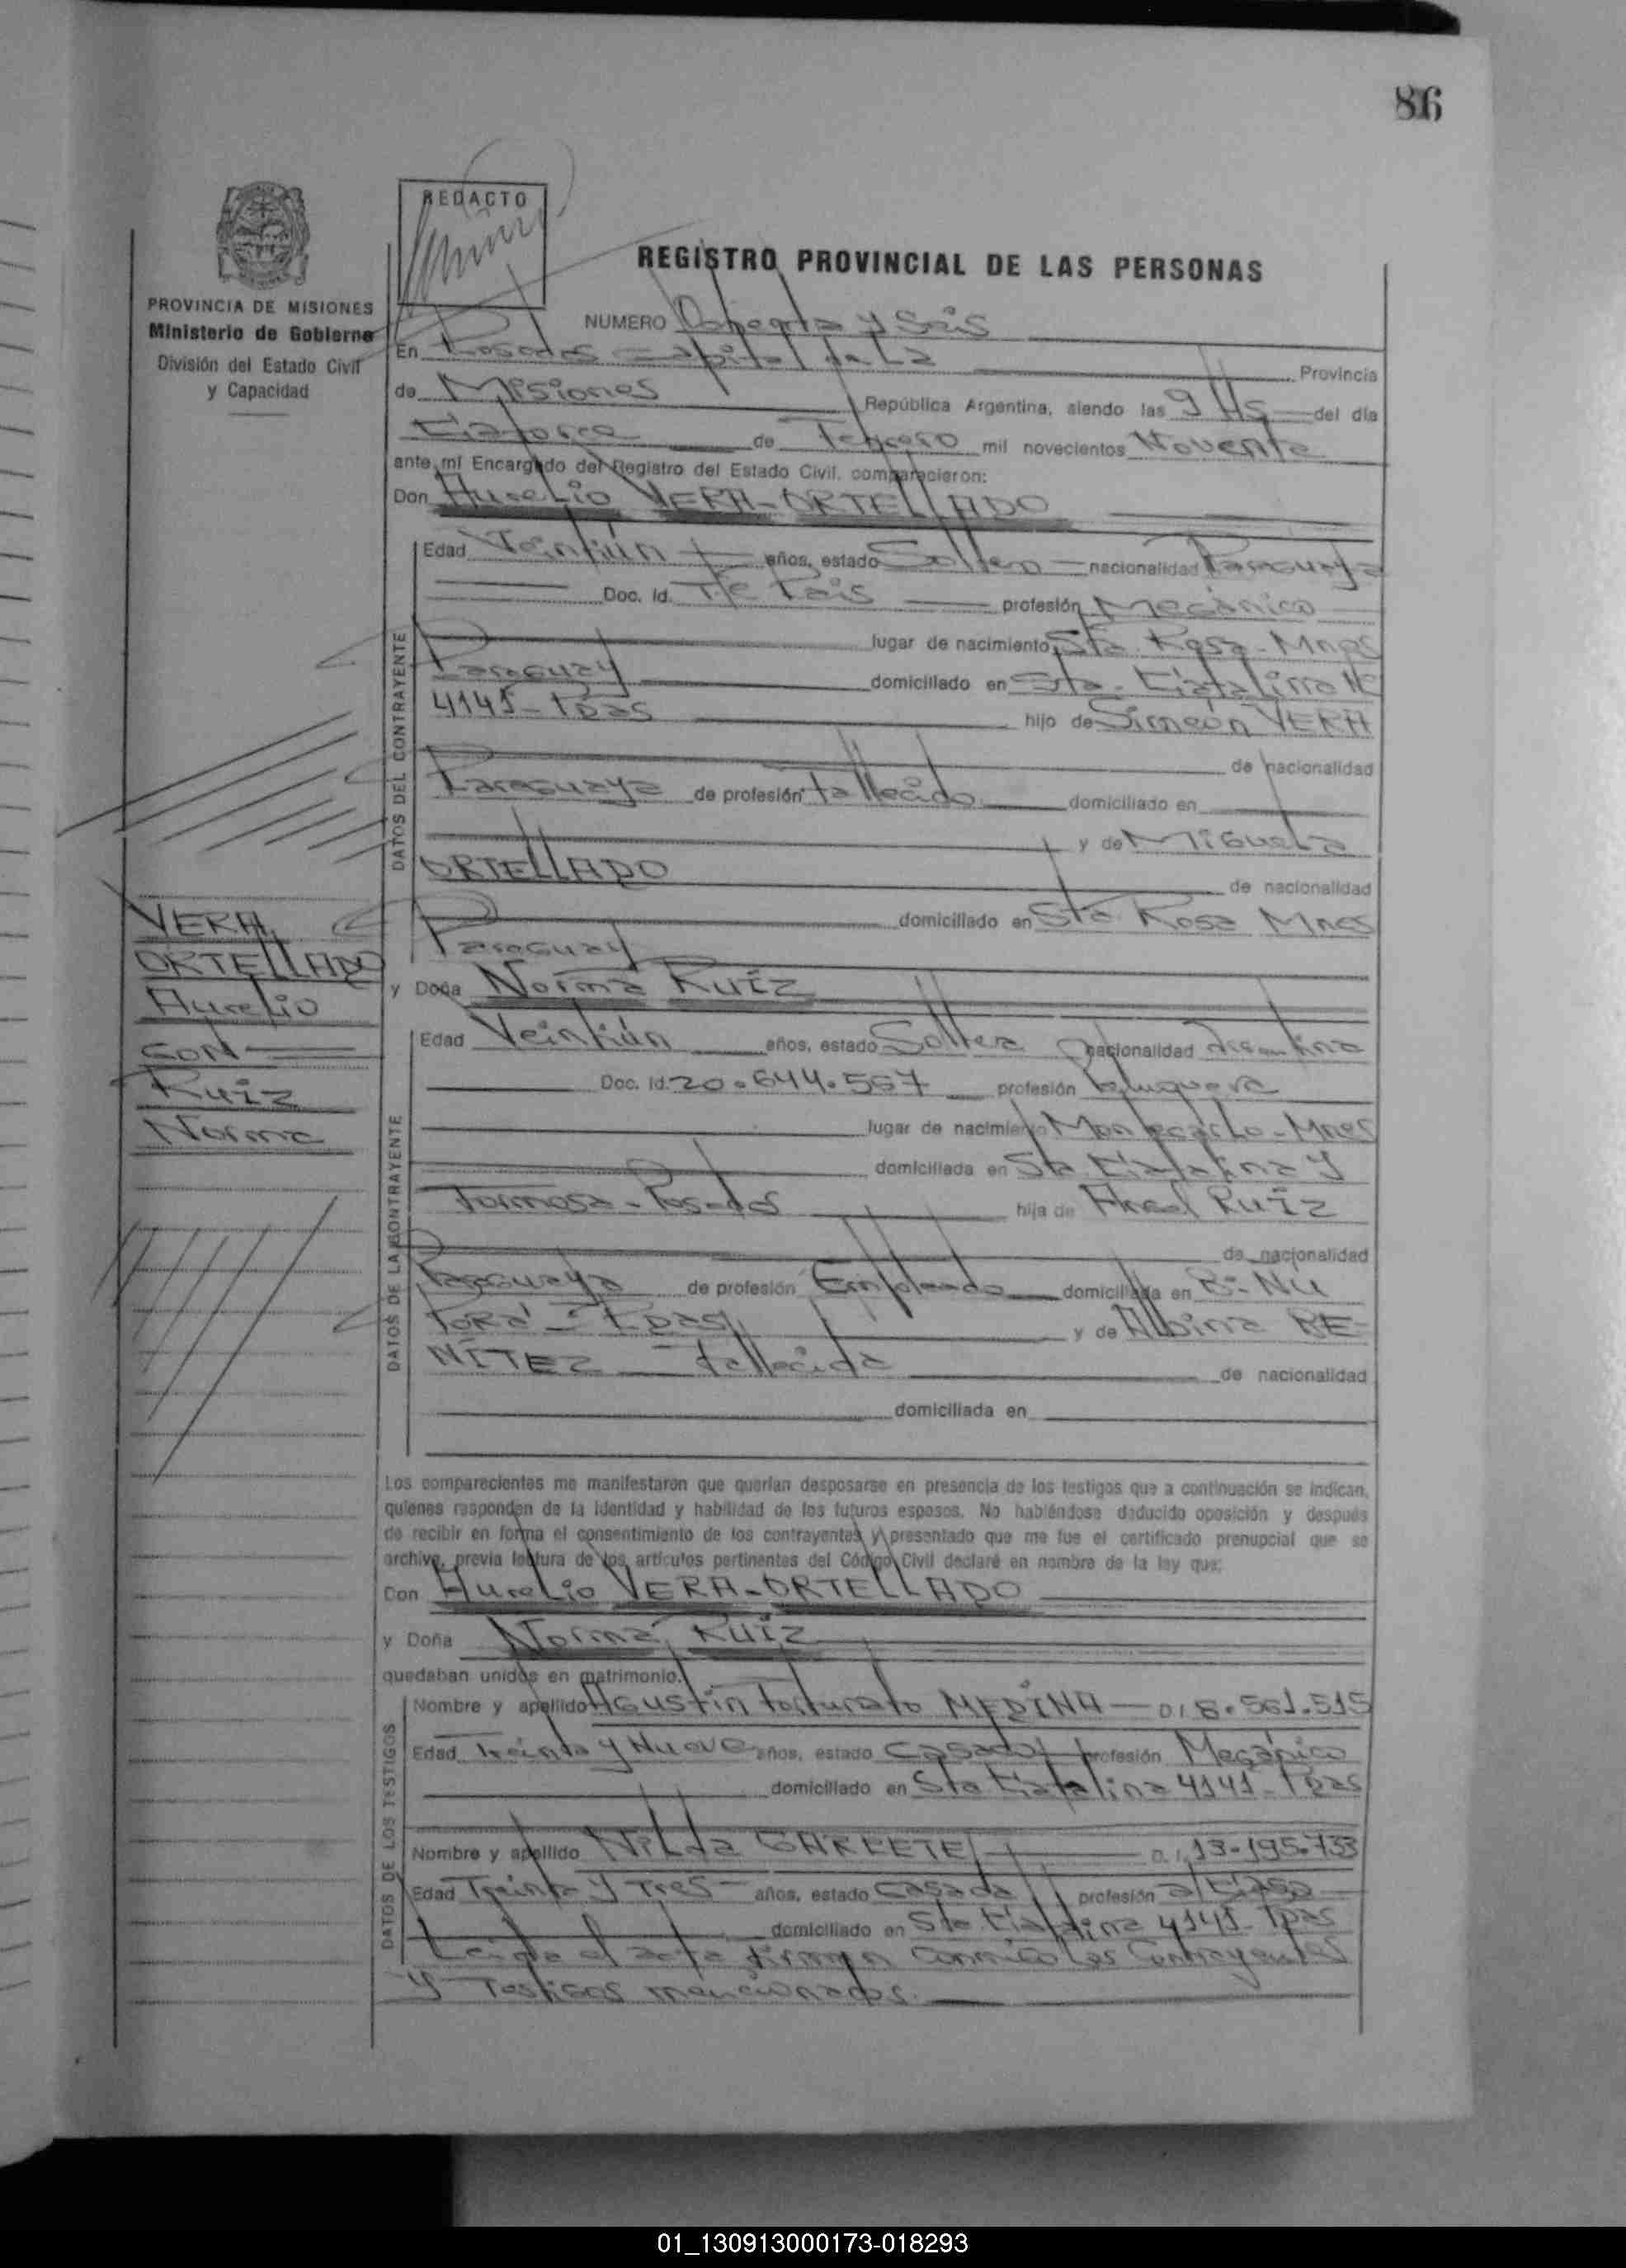 86
REDACTO
REGISTRO PROVINCIAL DE LAS PERSONAS
PROVINCIA DE MISIONES
Ministerio de Gobierno
División del Estado Civil
y Capacidad
NUMERO Ochenta y Seis
En Posadas Capital de La Provincia
de Misiones República Argentina, siendo las 9 Hs del día
Catorce de Febrero mil novecientos Noventa
ante mí Encargado del Registro del Estado Civil, comparecieron:
Don Aurelio VERA-ORTELLADO
DATOS DEL CONTRAYENTE
Edad Veintiún años, estado Soltero nacionalidad Paraguaya
Doc. Id. País profesión Mecánico
lugar de nacimiento Sta. Rosa - Mnes
Paraguay domiciliado en Sta. Catalina Nº
4145 - Pdas hijo de Simeón VERA
de nacionalidad
Paraguaya de profesión fallecido domiciliado en
y de Miguela
ORTELLADO de nacionalidad
domiciliado en Sta Rosa Mnes
Paraguay
VERA
ORTELLADO
Aurelio
CON
Ruiz
Norma
y Doña Norma RUIZ
DATOS DE LA CONTRAYENTE
Edad Veintiún años, estado Soltera nacionalidad Argentina
Doc. Id. 20.644.567 profesión Peluquera
lugar de nacimiento Montecarlo - Mnes
domiciliada en Sta Catalina y
Formosa - Posadas hija de Angel RUIZ
de nacionalidad
Paraguaya de profesión Empleado domiciliada en Bº Ñu
Porá - Pdas y de Albina BE-
NÍTEZ fallecida de nacionalidad
domiciliada en
Los comparecientes me manifestaron que querían desposarse en presencia de los testigos que a continuación se indican,
quienes responden de la identidad y habilidad de los futuros esposos. No habiéndose deducido oposición y después
de recibir en forma el consentimiento de los contrayentes y presentado que me fue el certificado prenupcial que se
archiva, previa lectura de los artículos pertinentes del Código Civil declaré en nombre de la ley que;
Don Aurelio VERA-ORTELLADO
y Doña Norma RUIZ
quedaban unidos en matrimonio.
DATOS DE LOS TESTIGOS
Nombre y apellido Agustín Fortunato MEDINA D.I 8.561.515
Edad Treinta y Nueve años, estado Casado profesión Mecánico
domiciliado en Sta Catalina 4141 - Pdas
Nombre y apellido Nilda D.I. 13.195.733
Edad Treinta y Tres años, estado casada profesión a/casa
domiciliado en Sta Catalina 4141 - Pdas
Leída el acta firman conmigo los Contrayentes
y Testigos mencionados.
01_130913000173-018293